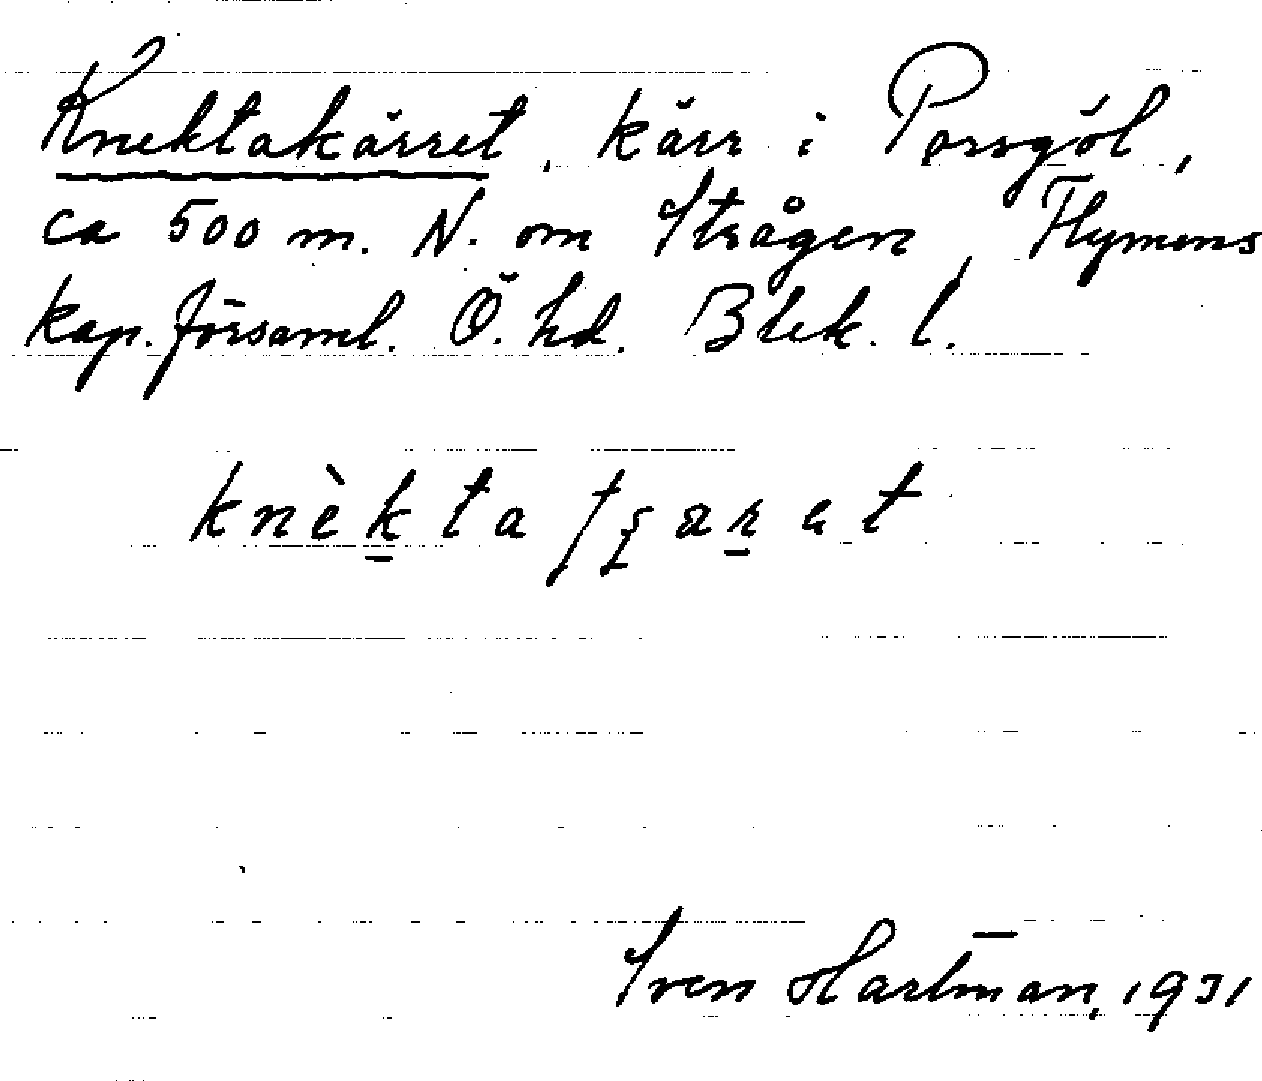 Knektakärret, kärr i Porsgöl,
ca 500 m. N. om Strågen, Flymens
kap. församl. Ö. hd. Blek. l.
knèkta
Sven Hartman, 1931